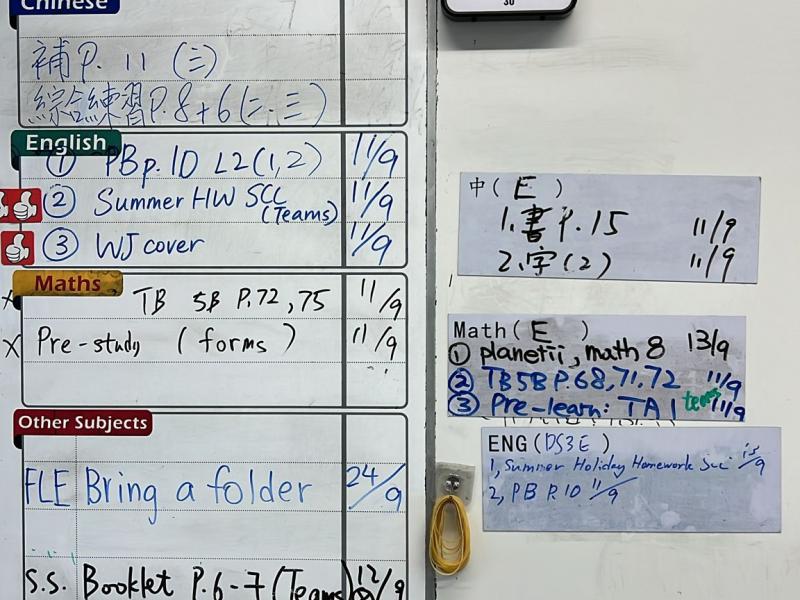 Chinese
補P. 11 (三)
綜合練習P.8+6(二.三)
English
① PB p.10 L2(1,2) 11/9
② Summer HW SCC (Teams) 11/9
③ WJ cover 11/9
Maths
x TB 5B P.72,75 11/9
x Pre-study (forms) 11/9
Other Subjects
FLE Bring a folder 24/9
S.S. Booklet P.6-7 (Teams) 12/9
30
中( E )
1.書P.15 11/9
2.字(2) 11/9
Math( E )
① planetii, math 8 13/9
② TB5B P.68,71,72 11/9
③ Pre-learn: TA1 teams 11/9
ENG(DS3E)
1, Summer Holiday Homework Scc /9
2, PB P.10 11/9